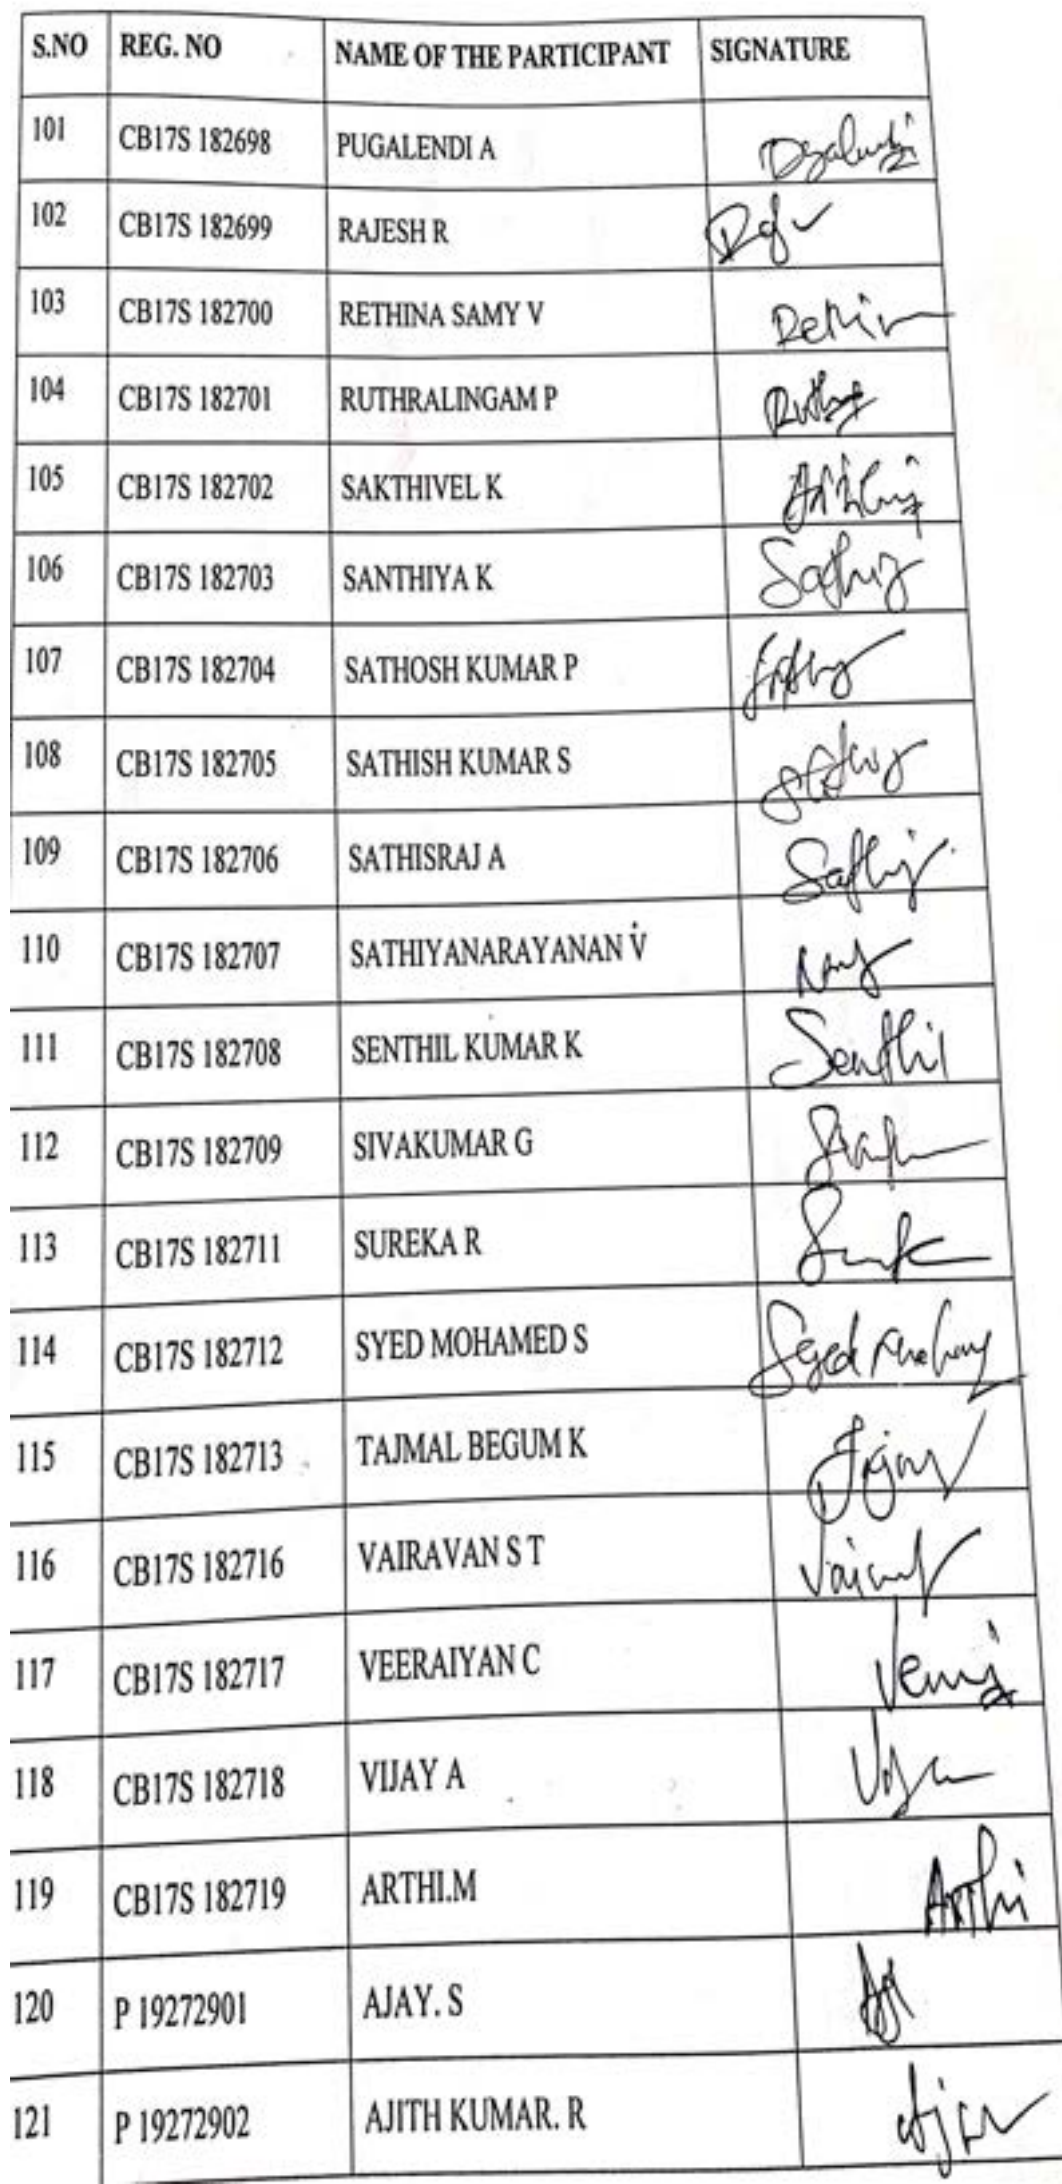 S.NO REG. NO NAME OF THE PARTICIPANT SIGNATURE
101 CB17S 182698 PUGALENDI A
102 CB17S 182699 RAJESH R
103 CB17S 182700 RETHINA SAMY V
104 CB17S 182701 RUTHRALINGAM P
105 CB17S 182702 SAKTHIVEL K
106 CB17S 182703 SANTHIYA K
107 CB17S 182704 SATHOSH KUMAR P
108 CB17S 182705 SATHISH KUMAR S
109 CB17S 182706 SATHISRAJ A
110 CB17S 182707 SATHIYANARAYANAN V
111 CB17S 182708 SENTHIL KUMAR K Senthil
112 CB17S 182709 SIVAKUMAR G
113 CB17S 182711 SUREKA R
114 CB17S 182712 SYED MOHAMED S Syed
115 CB17S 182713 TAJMAL BEGUM K
116 CB17S 182716 VAIRAVAN S T
117 CB17S 182717 VEERAIYAN C
118 CB17S 182718 VIJAY A
119 CB17S 182719 ARTHI.M Arthi
120 P 19272901 AJAY. S
121 P 19272902 AJITH KUMAR. R